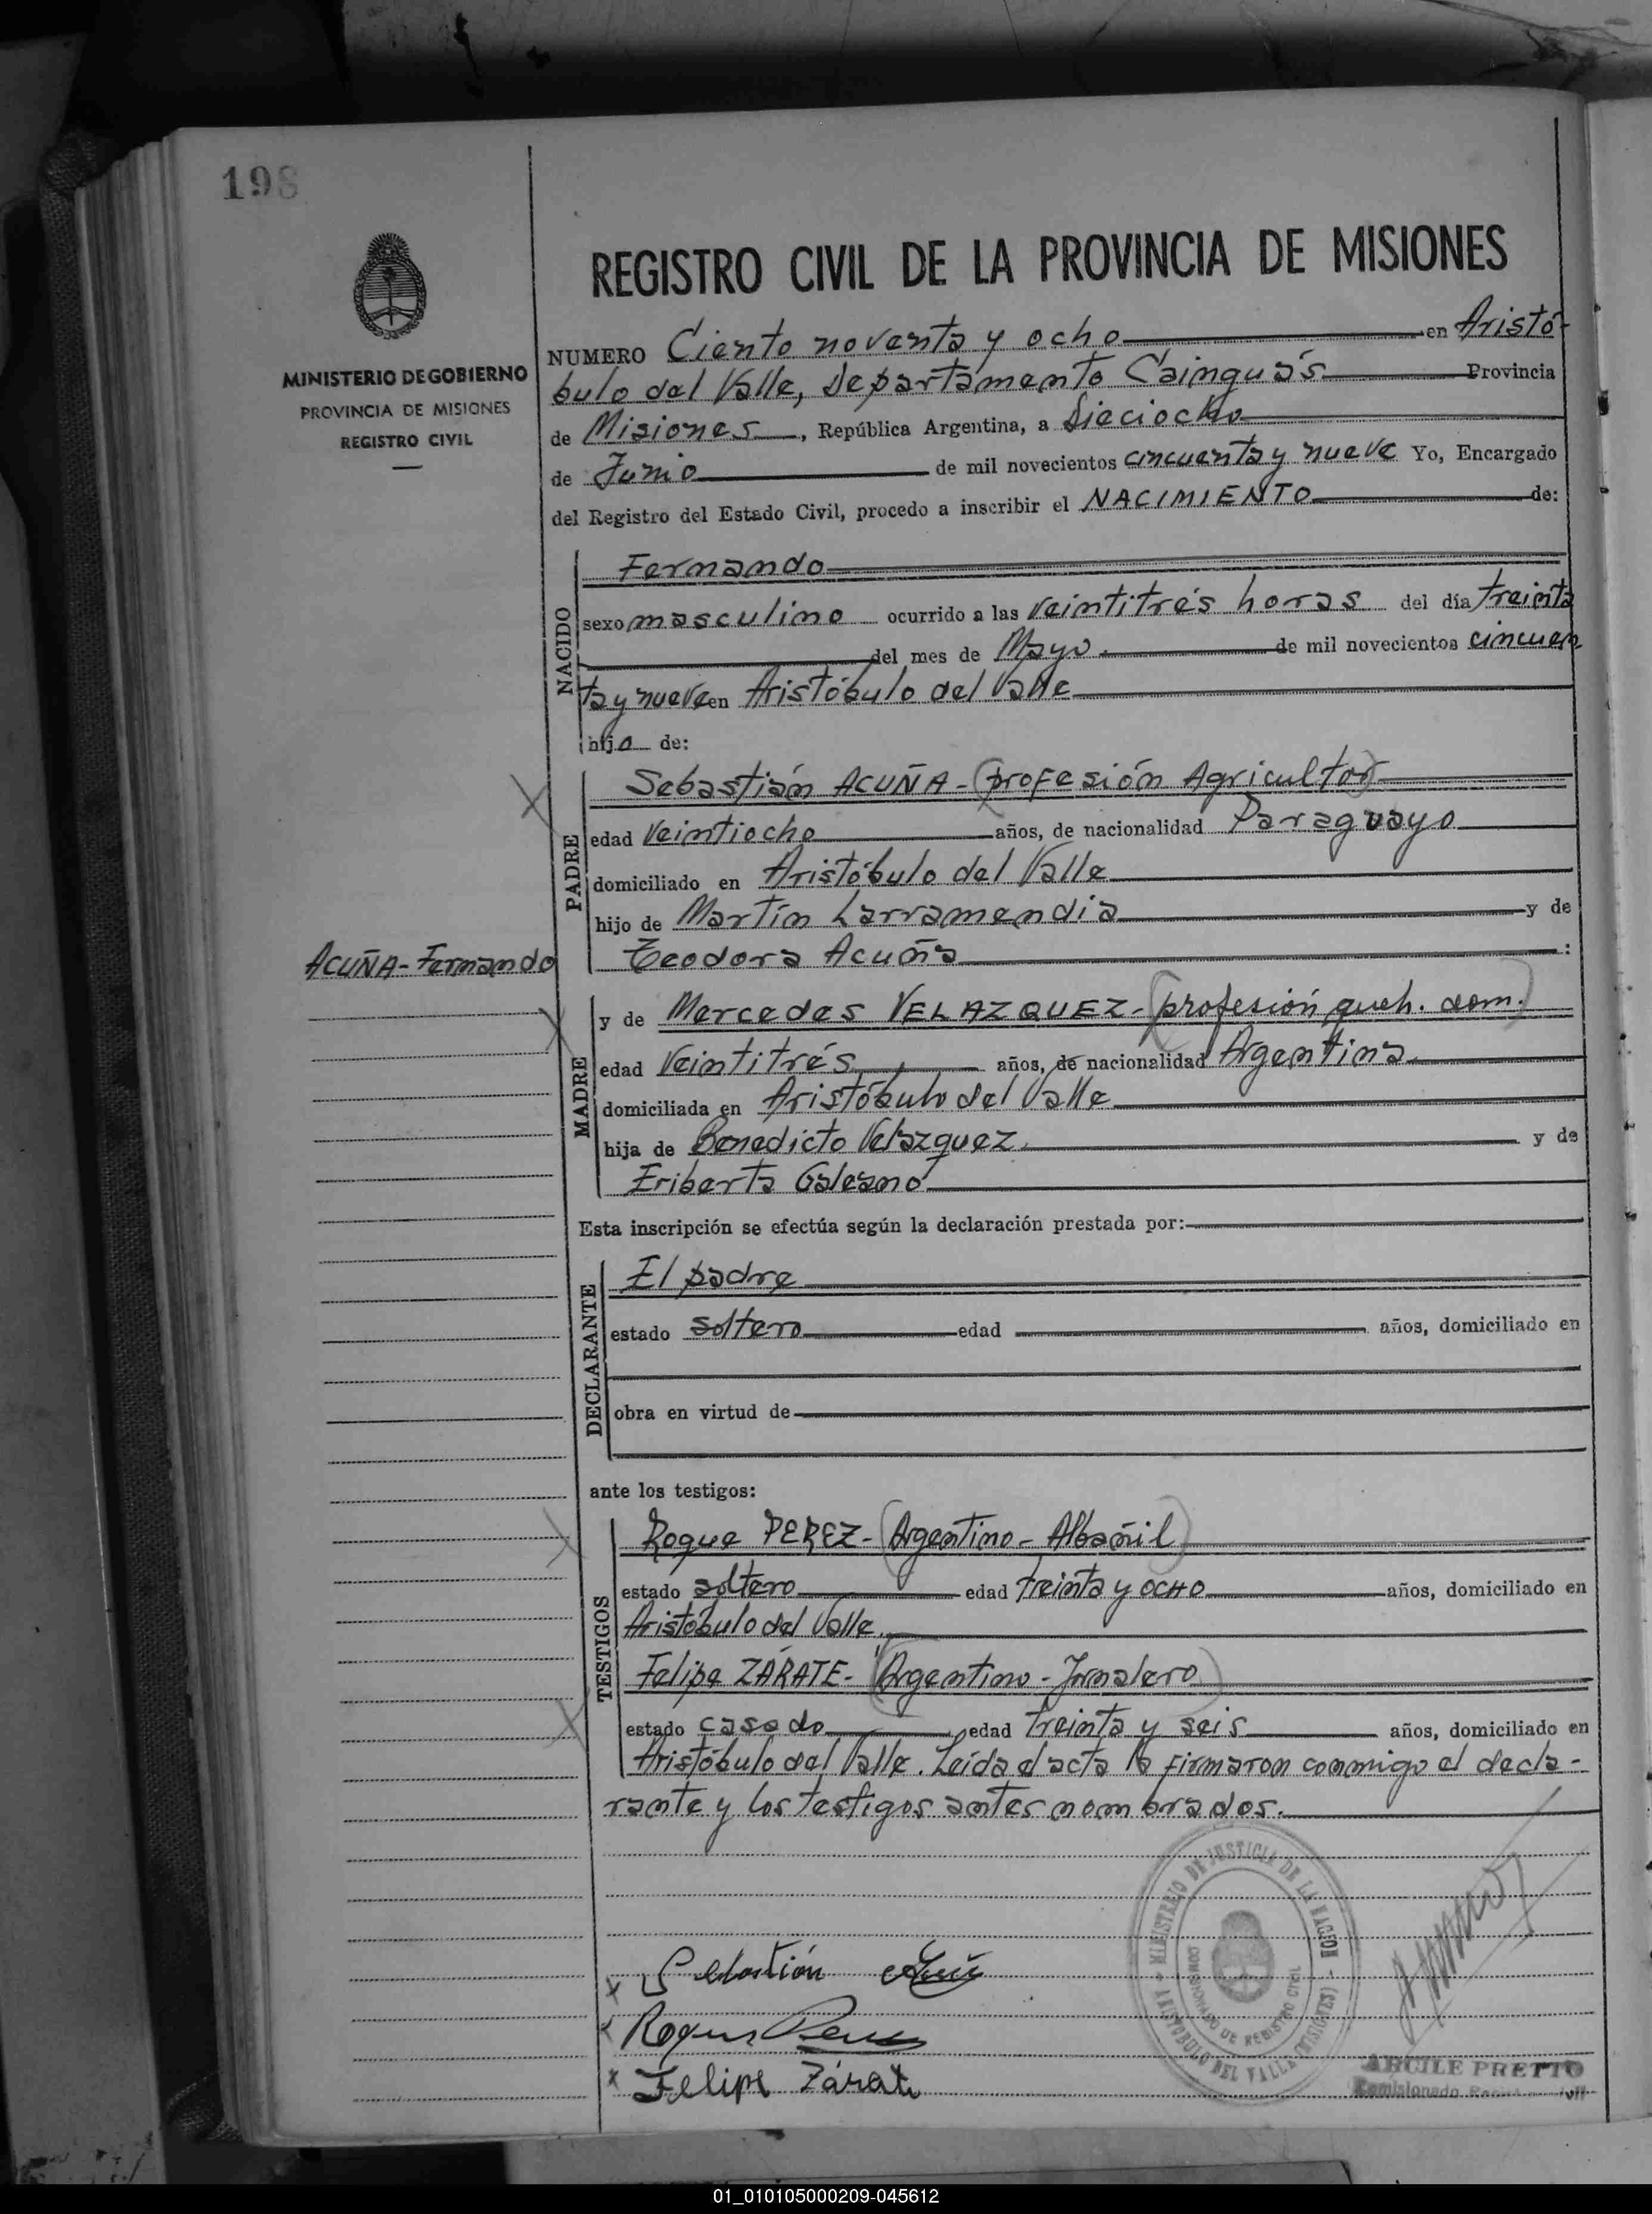 198
MINISTERIO DE GOBIERNO
PROVINCIA DE MISIONES
REGISTRO CIVIL
REGISTRO CIVIL DE LA PROVINCIA DE MISIONES
NUMERO Ciento noventa y ocho en Aristó-
bulo del Valle, Departamento Cainguás Provincia
de Misiones, República Argentina, a Dieciocho
de Junio de mil novecientos cincuenta y nueve Yo, Encargado
del Registro del Estado Civil, procedo a inscribir el NACIMIENTO de:
NACIDO
Fernando
sexo masculino ocurrido a las veintitrés horas del día treinta
del mes de Mayo de mil novecientos cincuen
ta y nueve en Aristóbulo del Valle
hijo de:
PADRE
Sebastián ACUÑA - (profesión Agricultor)
edad Veintiocho años, de nacionalidad Paraguayo
domiciliado en Aristóbulo del Valle
hijo de Martín Larramendia y de
Teodora Acuña :
ACUÑA - Fernando
MADRE
y de Mercedes VELAZQUEZ - (profesión queh. dom.)
edad Veintitrés años, de nacionalidad Argentina
domiciliada en Aristóbulo del Valle
hija de Benedicto Velazquez y de
Eriberta Galeano
Esta inscripción se efectúa según la declaración prestada por:
DECLARANTE
El padre
estado soltero edad años, domiciliado en
obra en virtud de
ante los testigos:
TESTIGOS
Roque PEREZ - (Argentino - Albañil)
estado soltero edad treinta y ocho años, domiciliado en
Aristóbulo del Valle.
Felipe ZÁRATE - (Argentino - Jornalero)
estado casado edad treinta y seis años, domiciliado en
Aristóbulo del Valle. Leída el acta la firmaron conmigo el decla-
rante y los testigos antes nombrados.
MINISTERIO DE JUSTICIA DE LA NACION - ARISTOBULO DEL VALLE (MISIONES)
DE REGISTRO CIVIL
x Sebastián Acuña
x Roque Perez
x Felipe Zárate
ABCILE PRETTO
Comisionado
01_010105000209-045612